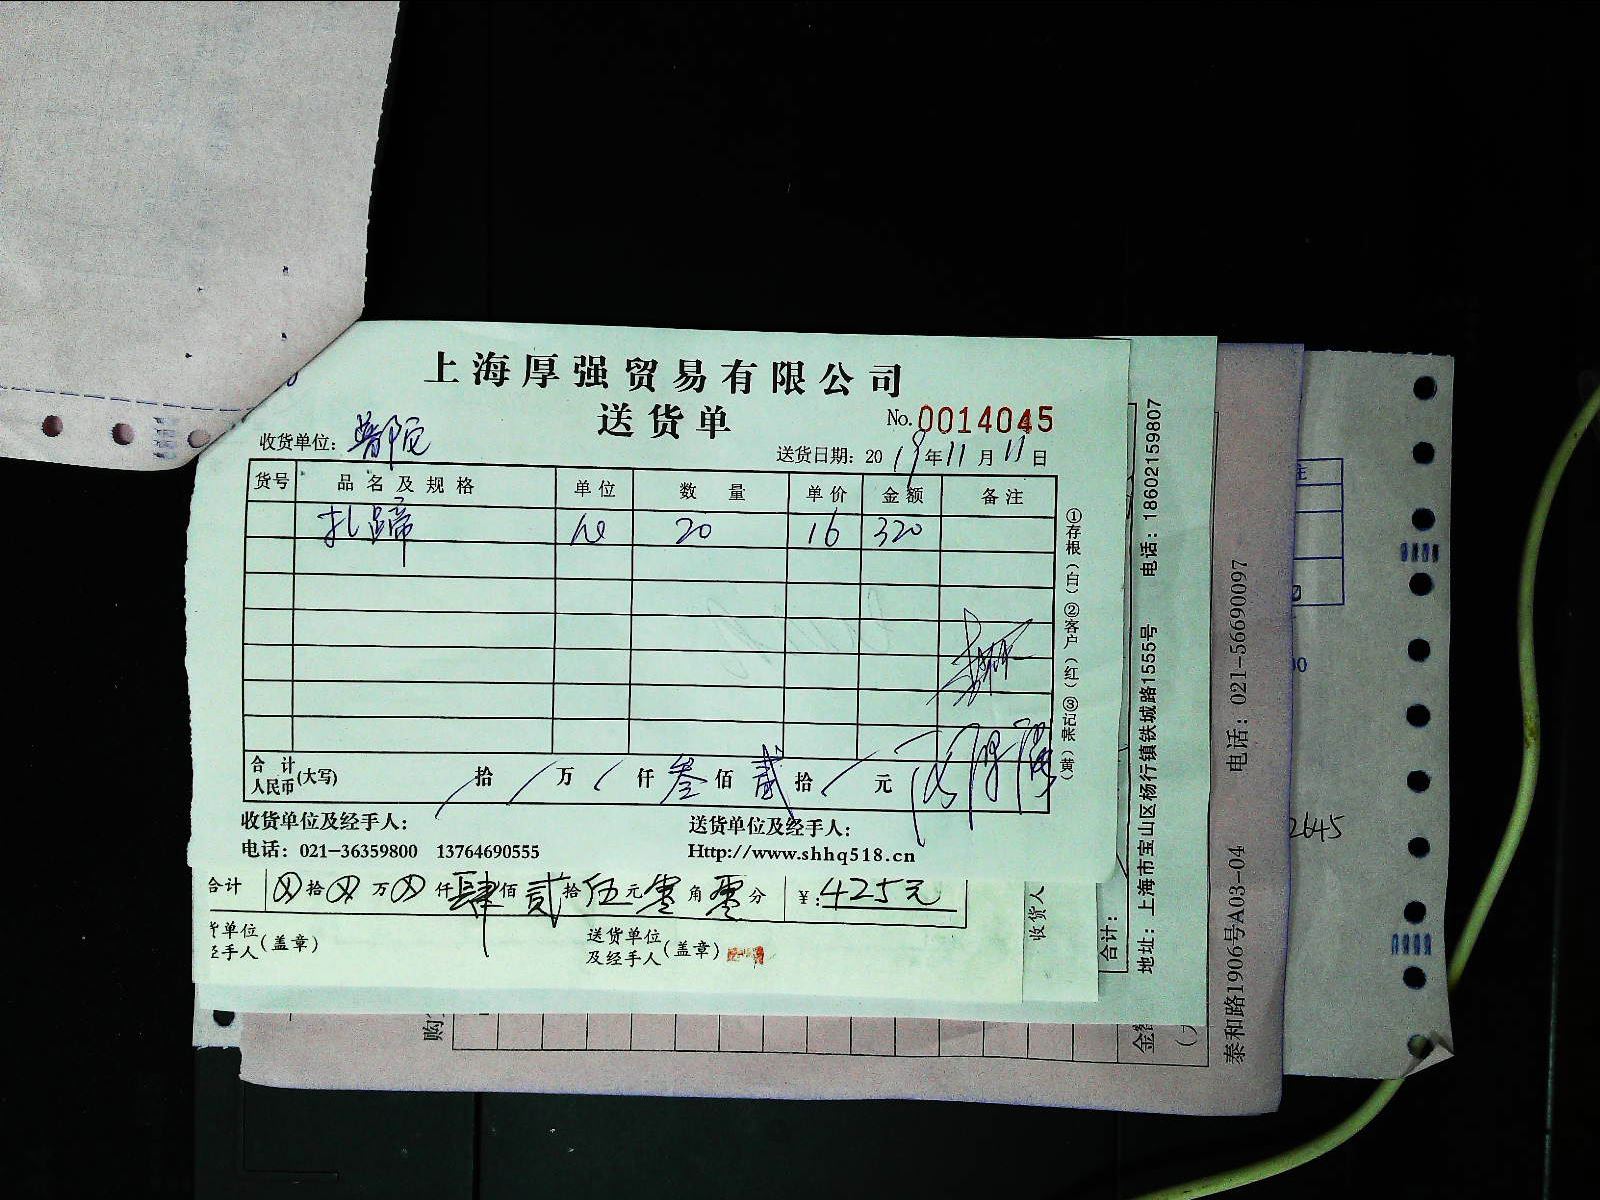 上海厚强贸易有限公司
送货单
No. 0014045
收货单位：普陀
送货日期：2019年11月11日
货号 品名及规格 单位 数量 单价 金额 备注
扎蹄 20 16 320
合计人民币(大写) 拾 万 仟 叁佰 贰拾 元
收货单位及经手人： 送货单位及经手人：
电话：021-36359800 13764690555 Http://www.shhq518.cn
①存根（白）②客户（红）③记帐（黄）
合计 拾 万 仟 肆佰 贰拾 伍元 零角 零分 ￥:425元
单位 送货单位
手人(盖章) 及经手人(盖章)
收货人
合计：
地址：上海市宝山区杨行镇铁城路1555号 电话：18602159807
泰和路1906号A03-04 电话：021-56690097
2645